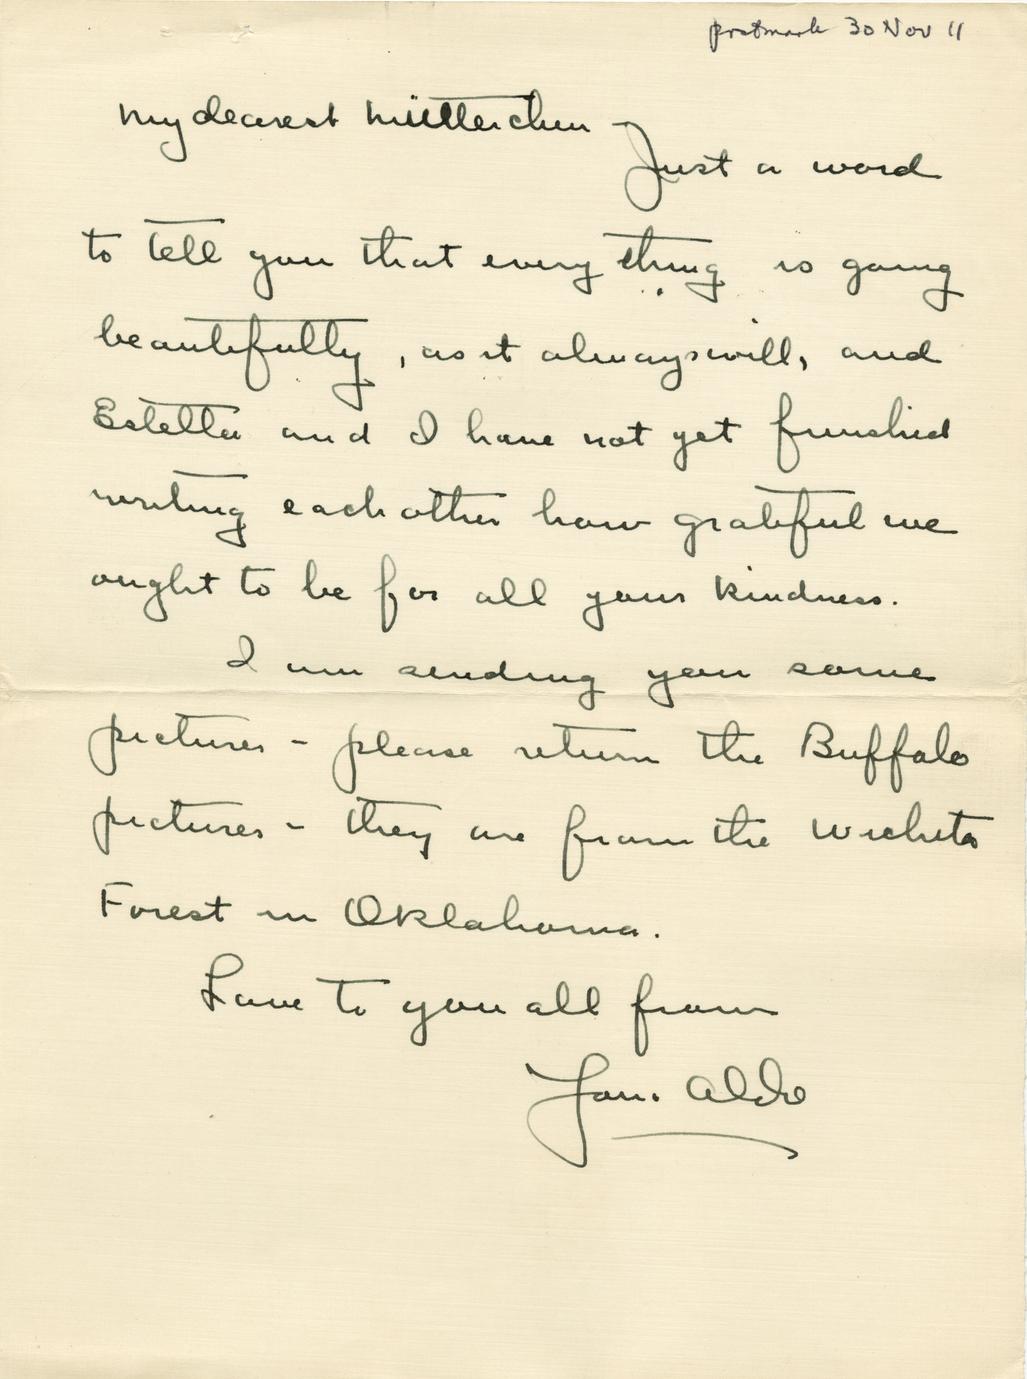 postmark 30 Nov 11
My dearest Mütterchen –
Just a word
to tell you that every thing is going
beautifully, as it always will, and
Estella and I have not yet finished
writing each other how grateful we
ought to be for all your kindness.
I am sending you some
pictures – please return the Buffalo
pictures – they are from the Wichita
Forest in Oklahoma.
Love to you all from
Aldo